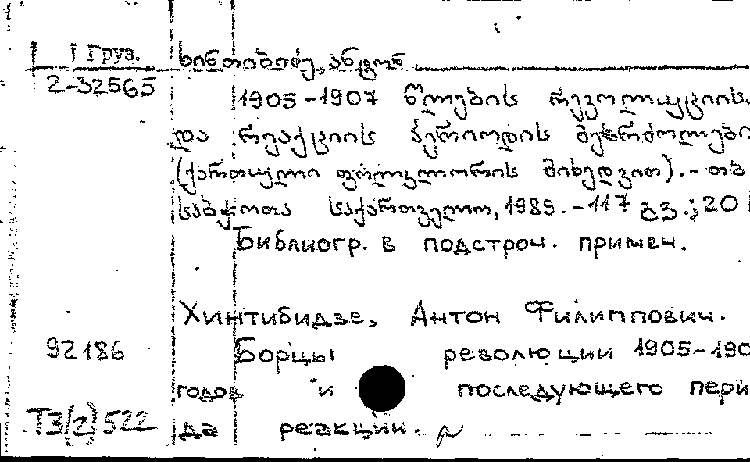 Груз.
2-32565
ხინთიბიძე, ანტონ
1905-1907 წლების რევოლუციის
და რეაქციის პერიოდის მებრძოლები
(ქართული ფოლკლორის მიხედვით).- თბ
საბჭოთა საქართველო, 1985.-117 გვ.; 20
Библиогр. в подстроч. примеч.
Хинтибидзе, Антон Филиппович.
92186 Борцы революции 1905-190
годов и последующего пери
Т3(2)522 да реакции.